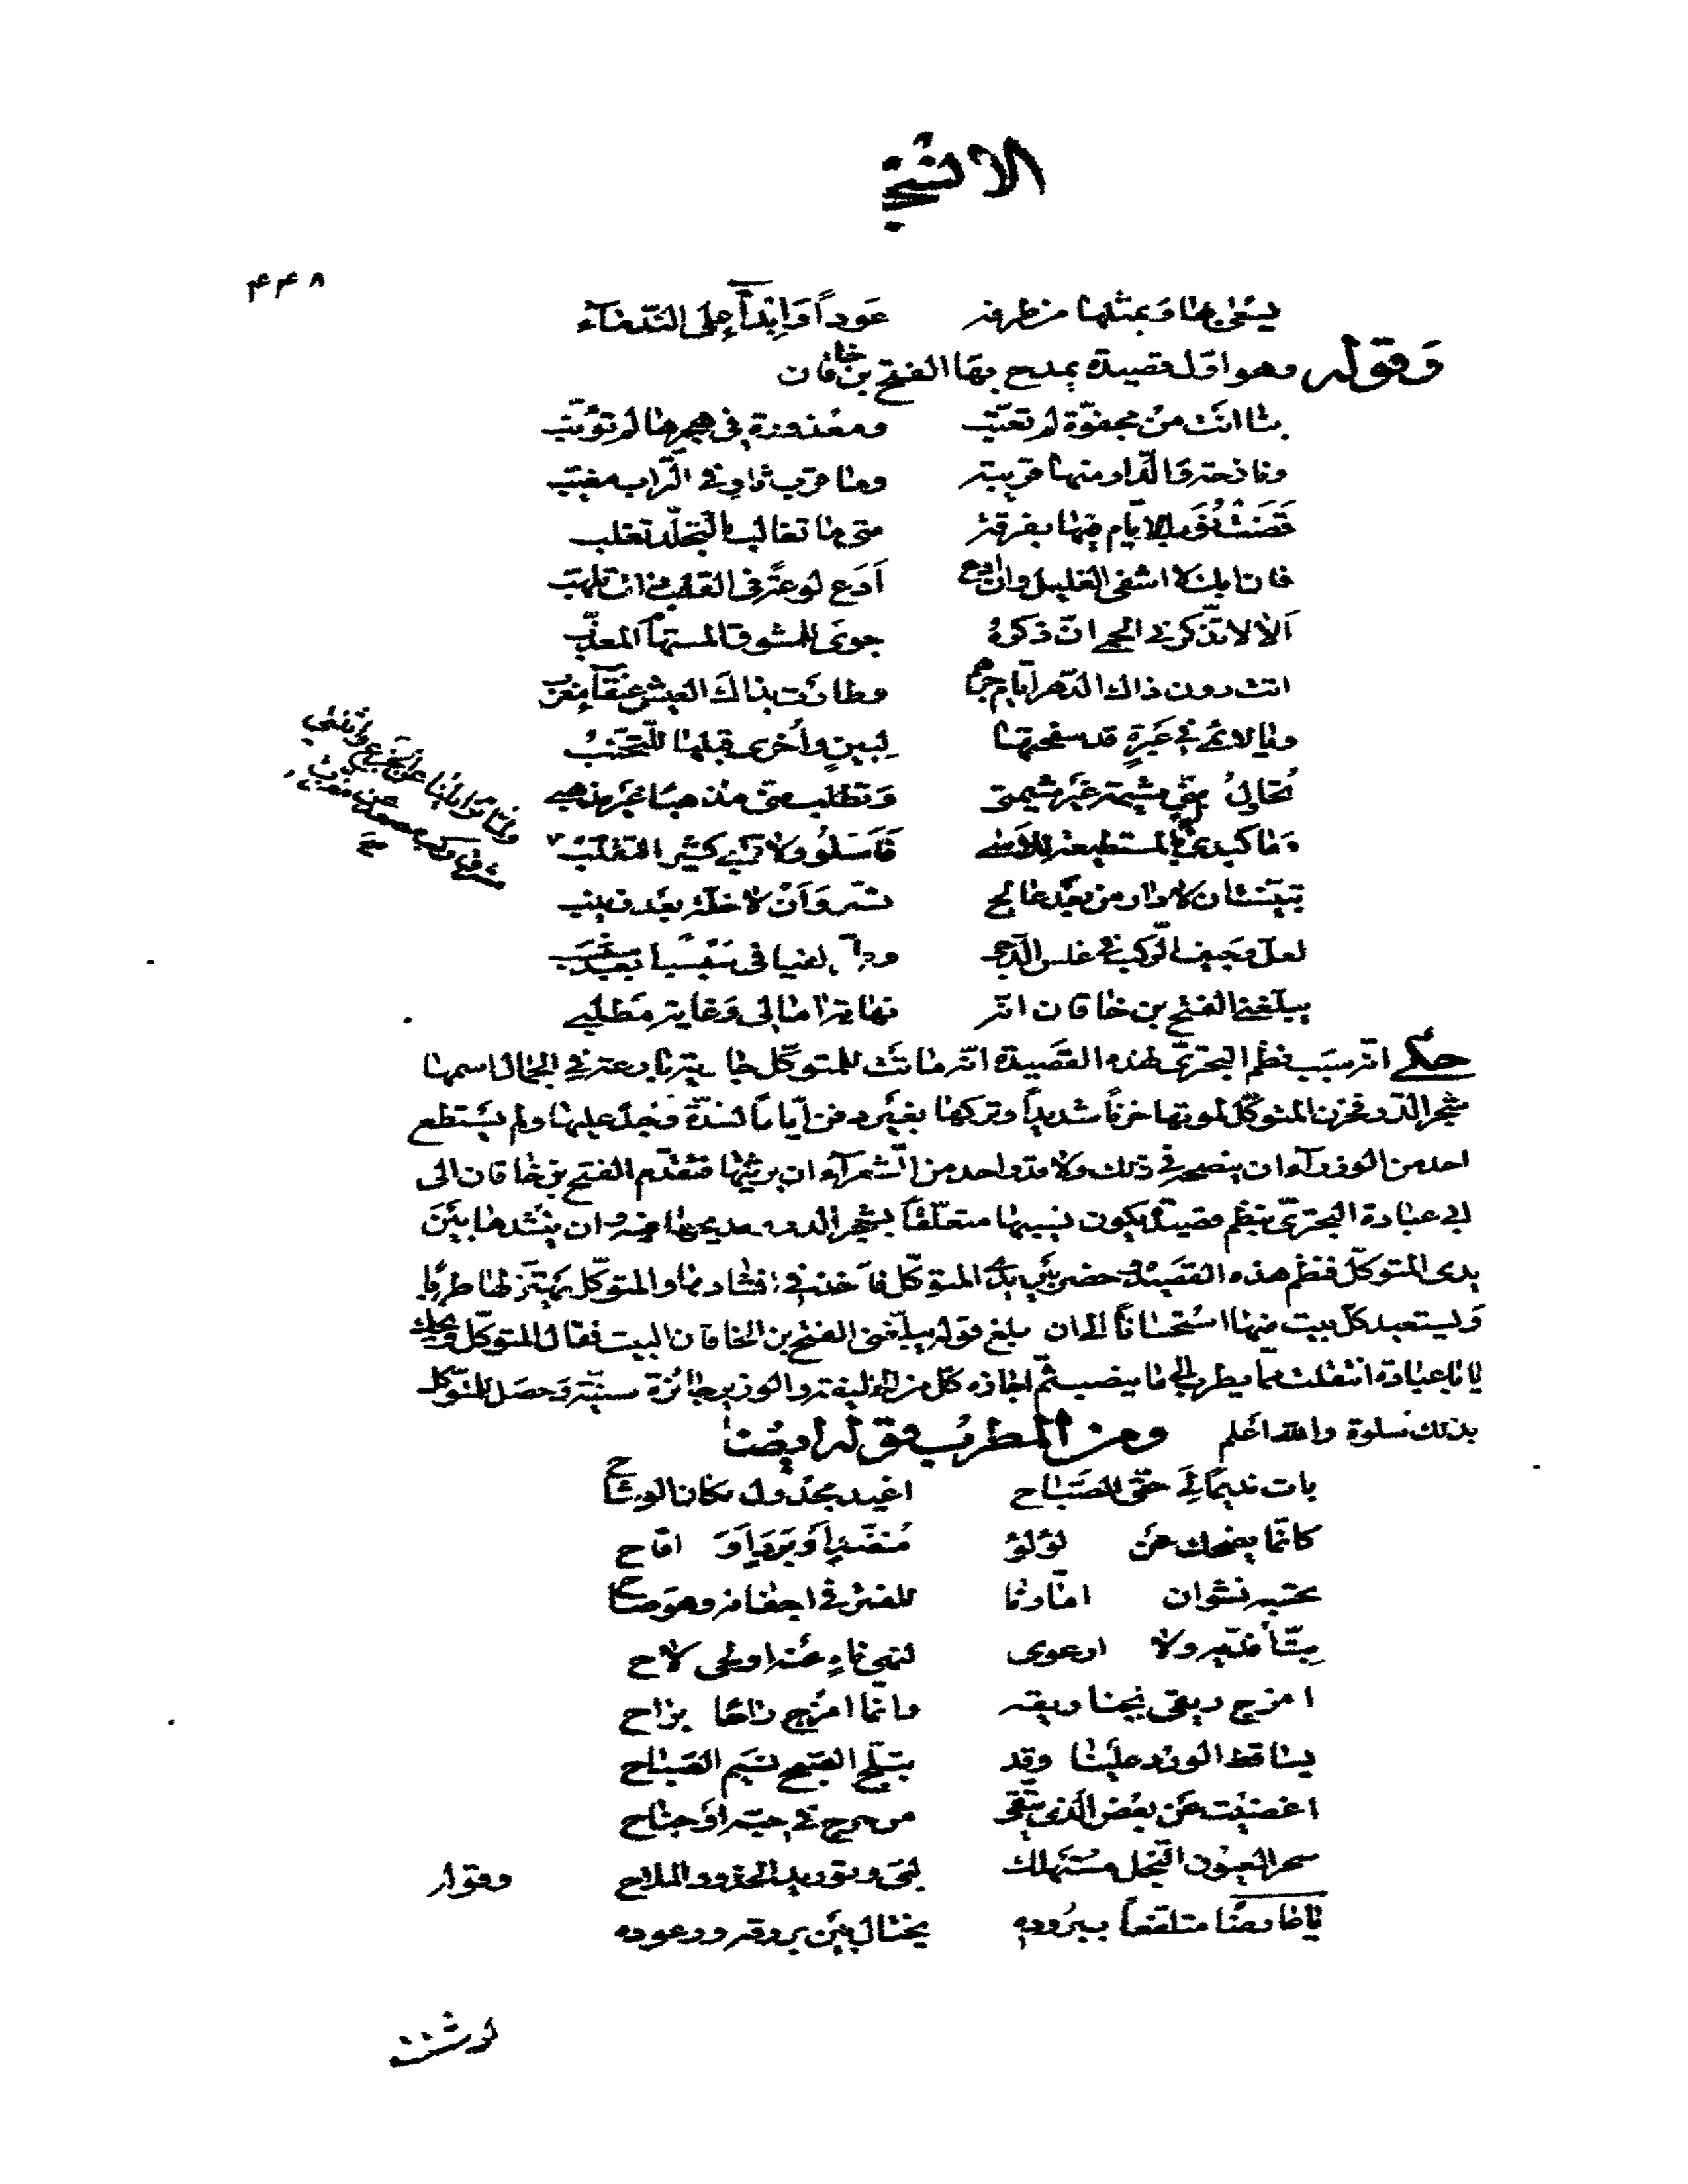 ٤٤٨
يسقى بها وبمثلها من طرفه عوداً وابدآءً على الندمآء
وقوله وهو اول قصيدة يمدح بها الفتح بن خاقان
بنا انت من مجفوّة لم تعتّب ومعذورة في هجرها لم تؤنّب
ونازحة والدار منها قريبة وما قرب ثاو في التراب مغيّب
قضت عقب الايّام فيها بفرقة متى ما تغالب بالتجلّد تغلب
فان ابك لا اشفى الغليل وان ادع ادع لوعة في القلب ذات تلهّب
ألا لا تذكرني الحمى انّ ذكره جوى للمشوق المستهام المعذّب
اتت دون ذاك الدهر ايام جرهم وطارت بذاك العيش عنقآء مغرب
ويا لائمي في عبرةٍ قد سفحتها لبينٍ وأخرى قبلها للتجنّب
تحاول منّي شيمة غير شيمتي وتطلب منّي مذهبا غير مذهبي
وما كبدي بالمستطيعة للأسى فأسلو ولا قلبي كثير التقلّب
تيقّنت ان لا دار من بعد عالج تسر وأن لا خلّة بعد زينب
لعل وجيف الركب في غلس الدجى وطيّ لفيافي سبسبا بعد سبسب
يبلّغني الفتح بن خاقان انه نهاية امالي وغاية مطلبي
حكى انه سبب نظم البحتريّ لهذه القصيدة انه ماتت للمتوكّل جارية بارعة في الجمال اسمها
شجر الدر فحزن المتوكّل لموتها حزناً شديداً وتركها بغير دفن أيّاماً لشدّة وجد عليها ولم يستطع
احد من الوزرآء ان ينصحه في ذلك ولا قدر احد من الشعرآء ان يرثيها فتقدّم الفتح بن خاقان الى
ابى عبادة البحتريّ بنظم قصيدة يكون نسيبها متعلّقاً بشجر الدر ومديحها فيه وان ينشدها بين
يدى المتوكّل فنظم هذه القصيدة وحضر بين يدي المتوكّل فأخذ في انشادها والمتوكّل يهتزّ لها طرباً
ويستعيد كل بيت منها استحساناً الى ان بلغ قوله يبلّغني الفتح بن الخاقان البيت فقال المتوكّل ويحك
يا ابا عبادة انتقلت مما يطرب الى ما ينصب ثم اجازه كلّ من الخليفة والوزير جائزة سنيّة وحصل للمتوكّل
بذلك سلوة والله اعلم ومن المطرب قوله ايضا
بات نديماً لي حتّى الصباح اغيد مجدول مكان الوشاح
كانّما يضحك عن لؤلؤ منضّد أو برد أو اقاح
تحسبه نشوان امّا رنا للفتر في اجفانه وهو صاح
بتّ أفديه ولا ارعوى لنهي ناهٍ عنه او لحى لاح
امزج ريقي بجنا ريقه وانّما امزج راحا براح
يساقط الورد علينا وقد تبلّج الصبح نسيم الصباح
اغضيت عن بعض الذي يتّقى من حرج في حبه او جناح
سحر العيون النجل مستهلك لبّى وتوريد الخدود الملاح وقوله
يا عارضا متلفّعاً ببروده يختال بين بروقه ورعوده